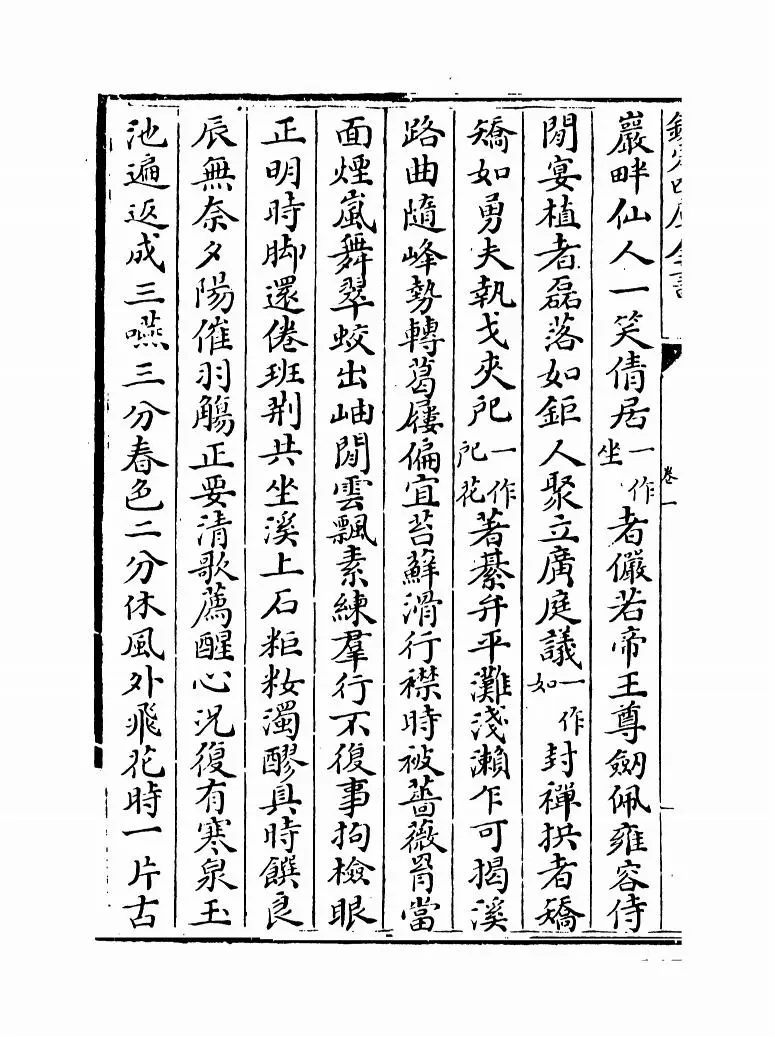 欽定四庫全書
卷一
巖畔仙人一笑倩居一作坐者儼若帝王尊劒佩雍容侍
閒宴植者磊落如鉅人聚立廣庭議一作如封禪拱者矯
矯如勇夫執戈夾戺一作戺花著綦弁平灘淺瀨乍可揭溪
路曲隨峰勢轉葛屨偏宜苔蘚滑行襟時被薔薇罥當
面煙嵐舞翠蛟出岫閒雲飄素練羣行不復事拘檢眼
正明時脚還倦班荆共坐溪上石粔籹濁醪具時饌良
辰無奈夕陽催羽觴正要清歌薦醒心况復有寒泉玉
池遍返成三嚥三分春色二分休風外飛花時一片古